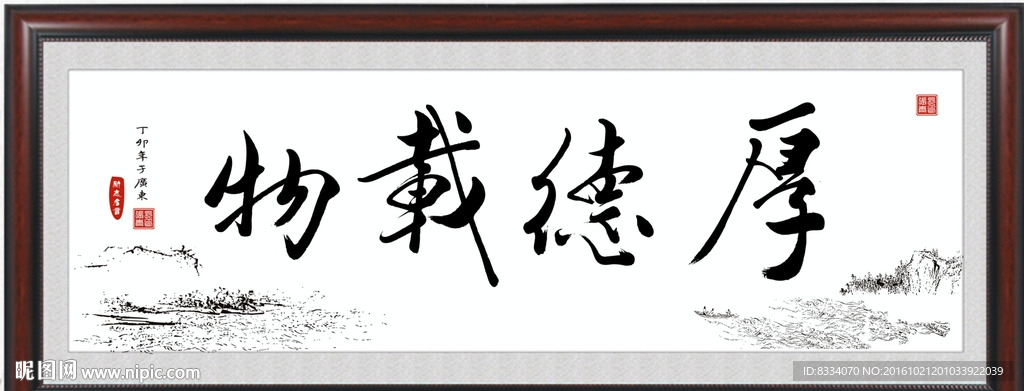 厚德載物
丁卯年于廣東
昵图网 www.nipic.com
ID:8334070 NO:20161021201033922039